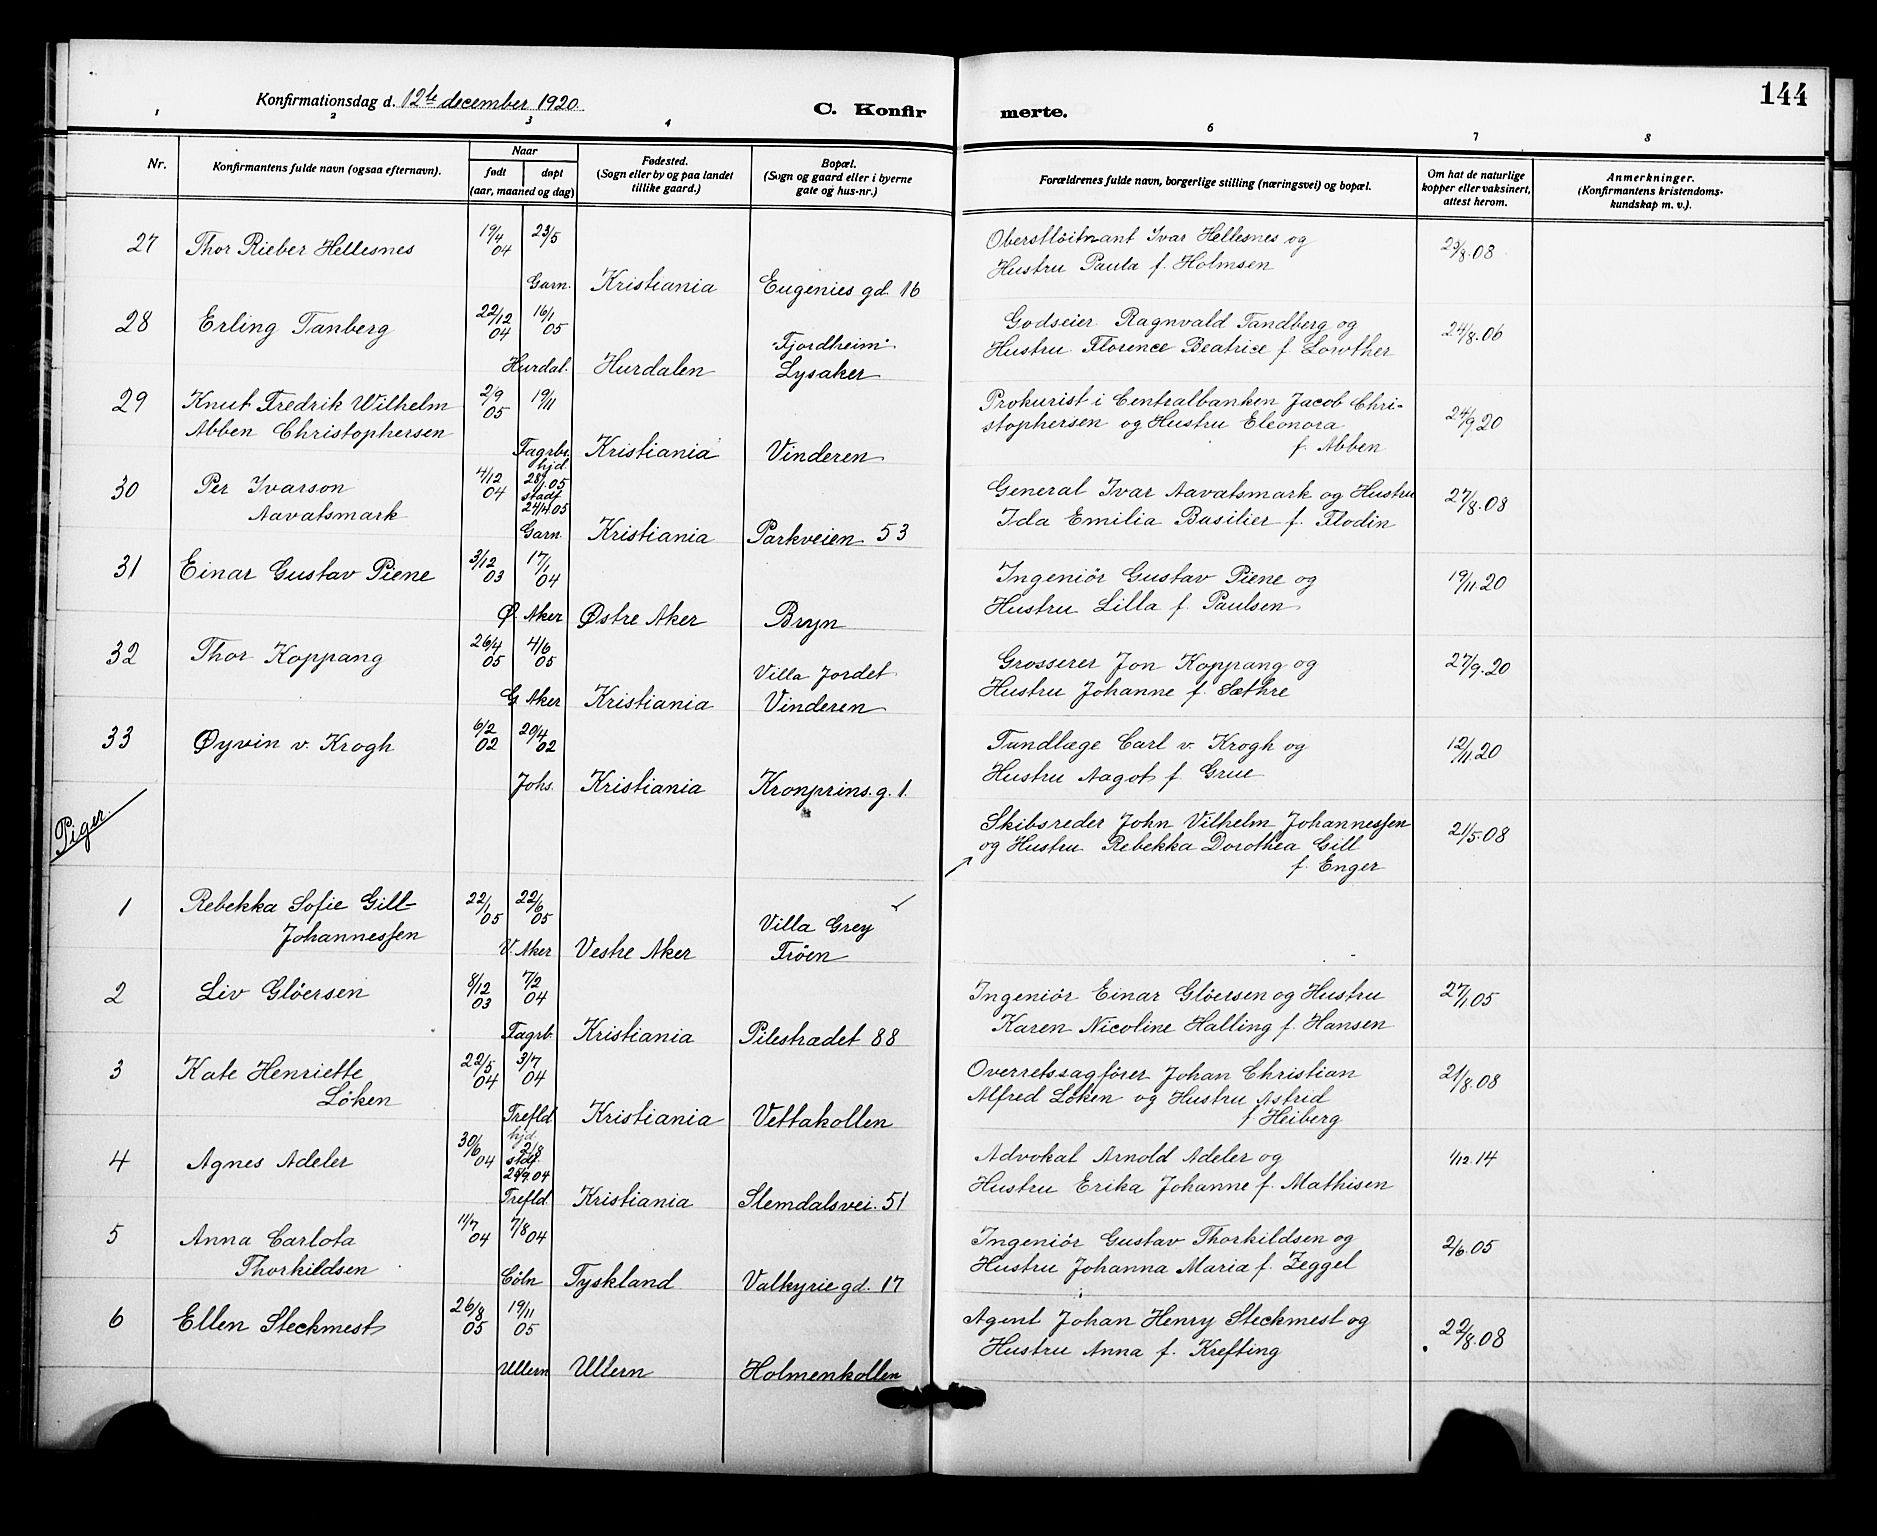 Konfirmationsdag d. 12te december 1920. C. Konfirmerte. 144
1 2 3 4 6 7 8
Nr. Konfirmantens fulde navn (ogsaa efternavn). Naar født døpt (aar, maaned og dag) Fødested. (Sogn eller by og paa landet tillike gaard.) Bopæl. (Sogn og gaard eller i byerne gate og hus-nr.) Forældrenes fulde navn, borgerlige stilling (næringsvei) og bopæl. Om hat de naturlige kopper eller vaksinert, attest herom. Anmerkninger. (Konfirmantens kristendoms-kundskap m. v.).
27 Thor Rieber Hellesnes 19/4 04 23/5 Oberstløitnant Ivar Hellesnes og 23/8.08
Garn. Kristiania Eugenies gd. 16 Hustru Paula f. Holmsen
28 Erling Tanberg 22/12 04 16/1 05 Godseier Ragnvald Tandberg og 24/8.06
Hurdal. Hurdalen "Fjordheim" Lysaker Hustru Florence Beatrice f. Lowther
29 Knut Fredrik Wilhelm 2/9 05 19/11 Prokurist i Centralbanken Jacob Chri-
Abben Christophersen stophersen og Hustru Eleonora 24/9.20
Fagrb. Kristiania Vinderen f. Abben
30 Per Ivarson 4/12 04 hjd. 28/1.05 General Ivar Aavatsmark og Hustru 27/8.08
Aavatsmark stadf. 24/4.05 Ida Emilia Basilier f. Flodin
Garn. Kristiania Parkveien 53
31 Einar Gustav Piene 3/12 03 17/1 04 Ingeniör Gustav Piene og 19/11.20
Ø. Aker Østre Aker Bryn Hustru Lilla f. Paulsen
32 Thor Koppang 26/4 05 4/6 05 Villa Jordet Grosserer Jon Koppang og 27/9.20
G. Aker Kristiania Vinderen Hustru Johanne f. Sæthre
33 Øyvin v. Krogh 6/2 02 20/4 02 Tandlæge Carl v. Krogh og 12/11.20
Johs. Kristiania Kronprins.g. 1. Hustru Aagot f. Grue
Piger.
Skibsreder John Vilhelm Johannessen 21/5.08
og Hustru Rebekka Dorothea Gill
f. Enger
1 Rebekka Sofie Gill- 22/1 05 22/6 05 Villa Grey
Johannessen V. Aker Vestre Aker Frøen
2 Liv Glöersen 8/12 03 7/2 04 Ingeniör Einar Glöersen og Hustru 27/1.05
Fagrb. Kristiania Pilestrædet 88 Karen Nicoline Halling f. Hansen
3 Kate Henriette 22/5 04 3/7 04 Overretssagförer Johan Christian 21/8.08
Löken Alfred Löken og Hustru Astrid
Trefld. Kristiania Vettakollen f. Heiberg
4 Agnes Adeler 30/6 04 hjd. 2/8 stdf. 25/9.04 Advokat Arnold Adeler og 1/12.14
Trefld. Kristiania Slemdalsvei. 51 Hustru Erika Johanne f. Mathisen
5 Anna Carlota 11/7 04 7/8 04 Ingeniör Gustav Thorkildsen og 2/6.05
Thorkildsen Cöln Tyskland Valkyriegd. 17 Hustru Johanna Maria f. Zeggel
6 Ellen Steckmest 26/8 05 19/11 05 Agent Johan Henry Steckmest og 22/8.08
Ullern Ullern Holmenkollen Hustru Anna f. Krefting